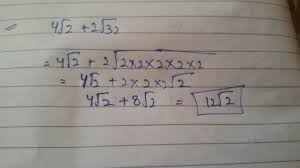 4√2 + 2√32
= 4√2 + 2√2×2×2×2×2
= 4√2 + 2×2×2√2
4√2 + 8√2 = 12√2